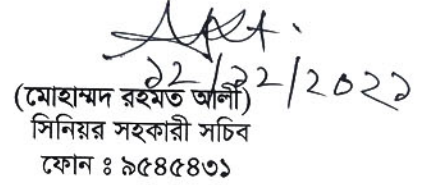 ১২/১২/২০২১
(মোহাম্মদ রহমত আলী)
সিনিয়র সহকারী সচিব
ফোন ঃ ৯৫৪৫৪৩১